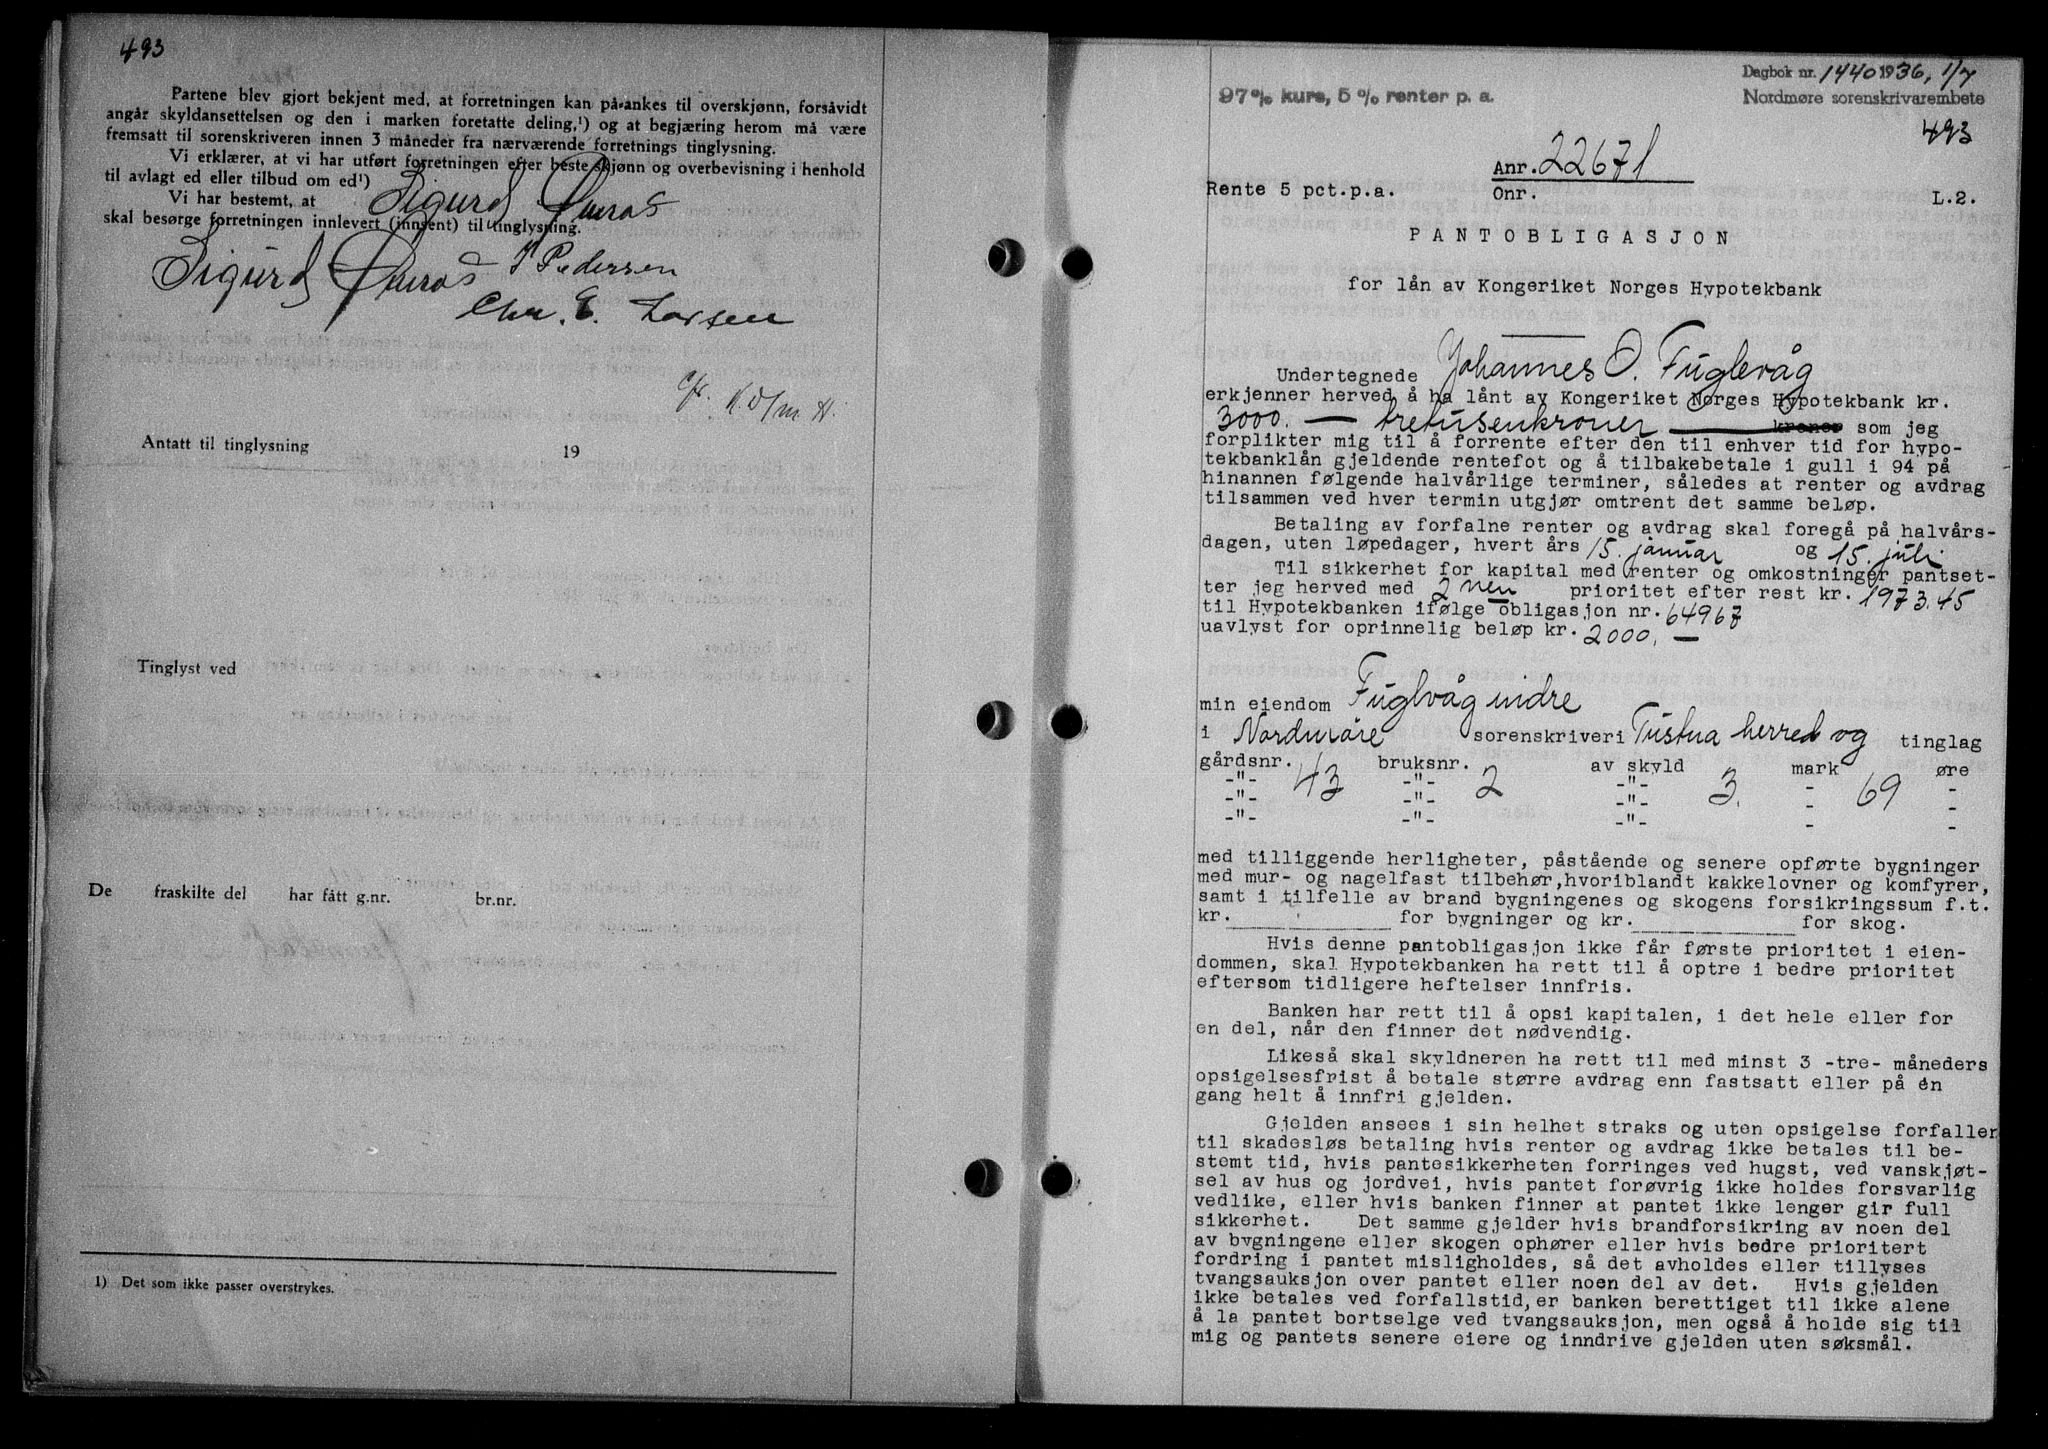 493
Partene blev gjort bekjent med, at forretningen kan på-ankes til overskjønn, forsåvidt
angår skyldansettelsen og den i marken foretatte deling,¹) og at begjæring herom må være
fremsatt til sorenskriveren innen 3 måneder fra nærværende forretnings tinglysning.
Vi erklærer, at vi har utført forretningen efter beste skjønn og overbevisning i henhold
til avlagt ed eller tilbud om ed¹)
Vi har bestemt, at Sigurd
skal besørge forretningen innlevert (innsent) til tinglysning.
Sigurd
Pedersen
Chr. E. Larsen
Antatt til tinglysning 19
Tinglyst ved
De fraskilte del har fått g.nr. br.nr.
1) Det som ikke passer overstrykes.
Dagbok nr. 1440 1936, 1/7
Nordmøre sorenskrivarembete
493
97 % kurs, 5 % renter p. a.
Anr. 22671
Rente 5 pct.p.a. Onr. L.2.
PANTOBLIGASJON
for lån av Kongeriket Norges Hypotekbank
Undertegnede Johannes O. Fuglevåg
erkjenner herved å ha lånt av Kongeriket Norges Hypotekbank kr.
3000.— tretusenkroner — kroner som jeg
forplikter mig til å forrente efter den til enhver tid for hypo-
tekbanklån gjeldende rentefot og å tilbakebetale i gull i 94 på
hinannen følgende halvårlige terminer, således at renter og avdrag
tilsammen ved hver termin utgjør omtrent det samme beløp.
Betaling av forfalne renter og avdrag skal foregå på halvårs-
dagen, uten løpedager, hvert års 15. januar og 15. juli
Til sikkerhet for kapital med renter og omkostninger pantset-
ter jeg herved med 2nen prioritet efter rest kr. 1973.45
til Hypotekbanken ifølge obligasjon nr. 64967
uavlyst for oprinnelig beløp kr. 2000.—
min eiendom Fuglvåg indre
i Nordmöre sorenskriveri Tustna herred og tinglag
gårdsnr. bruksnr. av skyld mark øre
-"- 43 -"- 2 -"- 3. - 69 -
-"- -"- -"- - -
-"- -"- -"- - -
med tilliggende herligheter, påstående og senere opførte bygninger
med mur- og nagelfast tilbehør, hvoriblandt kakkelovner og komfyrer,
samt i tilfelle av brand bygningenes og skogens forsikringssum f.t.
kr. for bygninger og kr. for skog.
Hvis denne pantobligasjon ikke får første prioritet i eien-
dommen, skal Hypotekbanken ha rett til å optre i bedre prioritet
eftersom tidligere heftelser innfris.
Banken har rett til å opsi kapitalen, i det hele eller for
en del, når den finner det nødvendig.
Likeså skal skyldneren ha rett til med minst 3 -tre- måneders
opsigelsesfrist å betale større avdrag enn fastsatt eller på én
gang helt å innfri gjelden.
Gjelden ansees i sin helhet straks og uten opsigelse forfallen
til skadesløs betaling hvis renter og avdrag ikke betales til be-
stemt tid, hvis pantesikkerheten forringes ved hugst, ved vanskjøt-
sel av hus og jordvei, hvis pantet forøvrig ikke holdes forsvarlig
vedlike, eller hvis banken finner at pantet ikke lenger gir full
sikkerhet. Det samme gjelder hvis brandforsikring av noen del
av bygningene eller skogen ophører eller hvis bedre prioritert
fordring i pantet misligholdes, så det avholdes eller tillyses
tvangsauksjon over pantet eller noen del av det. Hvis gjelden
ikke betales ved forfallstid, er banken berettiget til ikke alene
å la pantet bortselge ved tvangsauksjon, men også å holde sig til
mig og pantets senere eiere og inndrive gjelden uten søksmål.